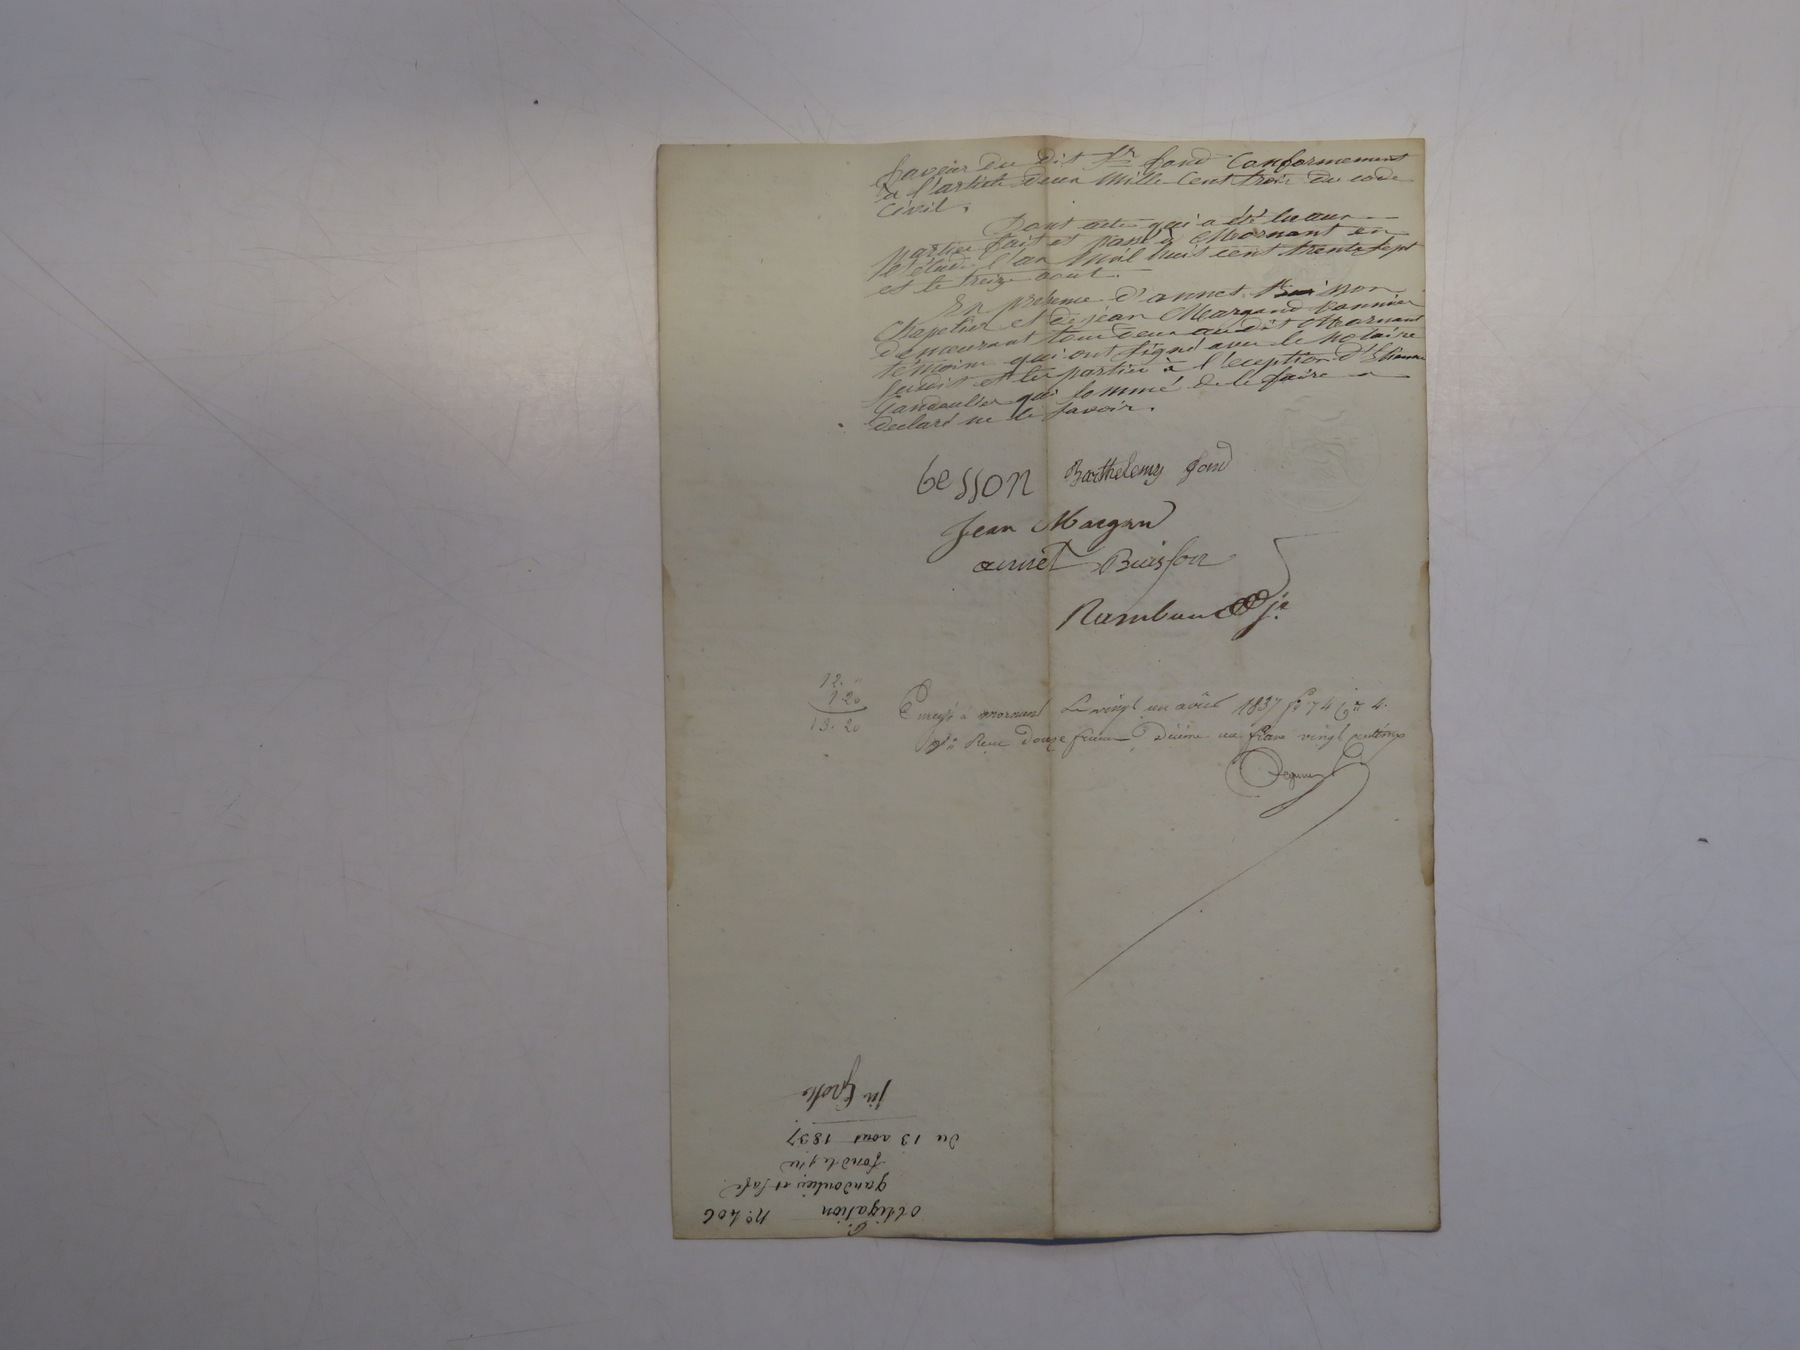 faveur du dit Sr fond Conformement
à l'article deux Mille Cent trois du code
Civil.
Dont acte qui a été lu aux
parties fait et passé à Mornant en
l'étude l'an Mil huit cent trente sept
et le treize aout.
En présence d'annet Buisson
Chapelier et de jean Margand Vannier
demeurant tous deux au dit Mornant
témoins qui ont signé avec le Notaire
susdit et les parties à l'éception d'Etienne
Gandoulier qui sommé de le faire a
declaré ne le savoir.
besson Barthelemy fond
Jean Margan
annet Buisson
Rambaud je
12. "
1 20
13. 20
Enregé à mornant Le vingt un août 1837 fo 74 Co 4.
Reçu douze francs, Décime un franc vingt centimes
obligation No. 406
gandoulier et
fond le pré
du 13 aout 1837